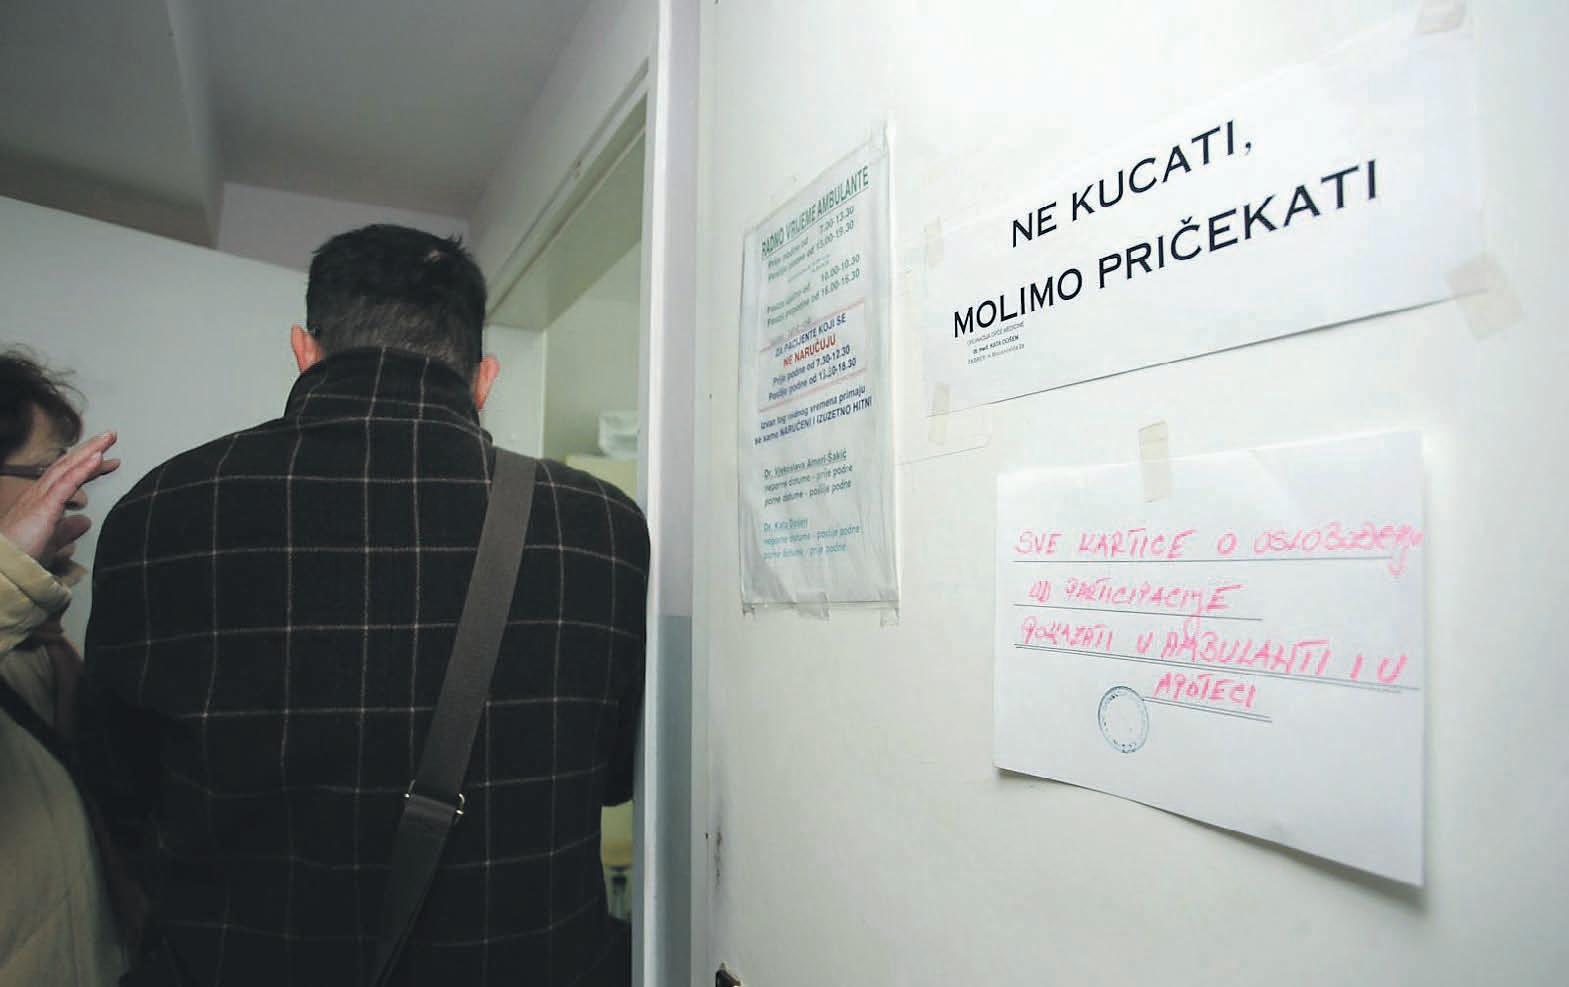 RADNO VRIJEME AMBULANTE
Prije podne od 7.00-13.30
Poslije podne od 13.00-19.30
Pauza ujutro od 10.00-10.30
Pauza popodne od 16.00-16.30
ZA PACIJENTE KOJI SE
NE NARUČUJU
Prije podne od 7.30-12.30
Poslije podne od 13.30-18.30
Izvan tog radnog vremena primaju
se samo NARUČENI I IZUZETNO HITNI
Dr. Vjekoslava Amerl-Šakić
neparne datume - prije podne
parne datume - poslije podne
Dr. Kata Došen
neparne datume - poslije podne
parne datume - prije podne
NE KUCATI,
MOLIMO PRIČEKATI
ORDINACIJA OPĆE MEDICINE
dr. med. KATA DOŠEN
ZAGREB
SVE KARTICE O OSLOBOĐENJU
OD PARTICIPACIJE
POKAZATI U AMBULANTI I U
APOTECI